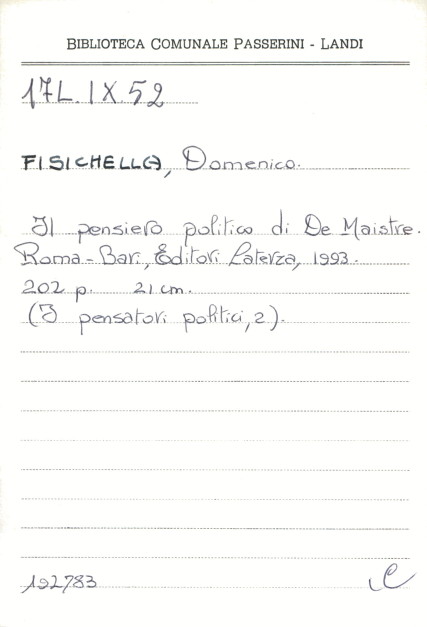 BIBLIOTECA COMUNALE PASSERINI - LANDI
17L.IX.52
FISICHELLA, Domenico.
Il pensiero politico di De Maistre.
Roma-Bari, Editori Laterza, 1993.
202 p. 21 cm.
(I pensatori politici, 2).
192783